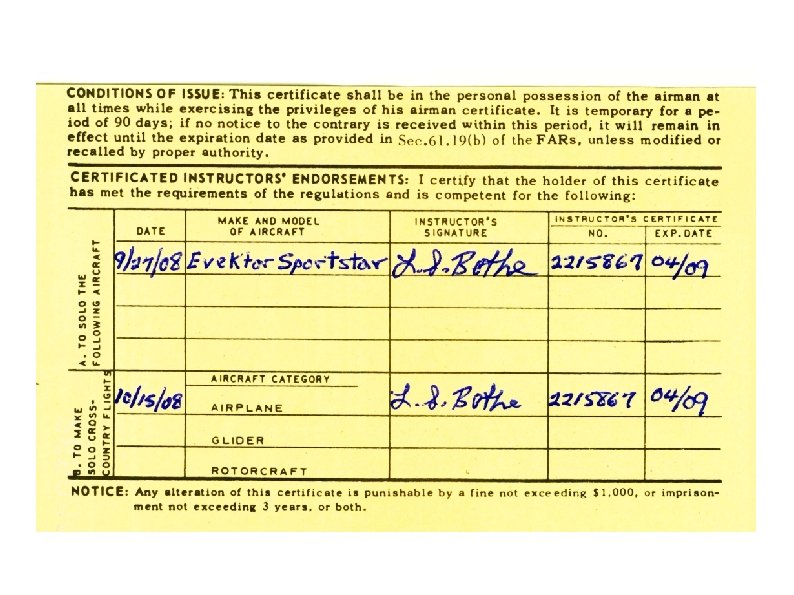 CONDITIONS OF ISSUE: This certificate shall be in the personal possession of the airman at
all times while exercising the privileges of his airman certificate. It is temporary for a pe-
iod of 90 days; if no notice to the contrary is received within this period, it will remain in
effect until the expiration date as provided in Sec.61.19(b) of the FARs, unless modified or
recalled by proper authority.
CERTIFICATED INSTRUCTORS' ENDORSEMENTS: I certify that the holder of this certificate
has met the requirements of the regulations and is competent for the following:
DATE MAKE AND MODEL OF AIRCRAFT INSTRUCTOR'S SIGNATURE INSTRUCTOR'S CERTIFICATE NO. EXP. DATE
A. TO SOLO THE FOLLOWING AIRCRAFT
9/27/08 Evektor Sportstar L. S. Bothe 2215867 04/09
B. TO MAKE SOLO CROSS-COUNTRY FLIGHTS
AIRCRAFT CATEGORY
10/15/08 AIRPLANE L. S. Bothe 2215867 04/09
GLIDER
ROTORCRAFT
NOTICE: Any alteration of this certificate is punishable by a fine not exceeding $1,000, or imprison-
ment not exceeding 3 years, or both.